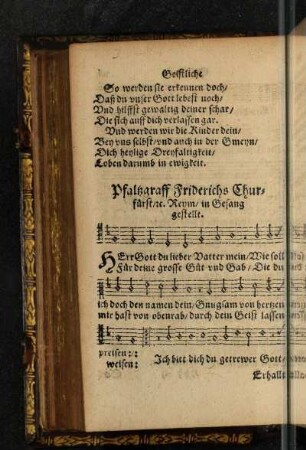 Geistliche
So werden sie erkennen doch/
Daß du vnser Gott lebest noch/
Vnd hilffst gewaltig deiner schar/
Die sich auff dich verlassen gar.
Vnd werden wir die Kinder dein/
Bey vns selbst/ vnd auch in der Gmeyn/
Dich heylige Dreyfaltigkeit/
Loben darumb in ewigkeit.
Pfaltzgraff Friderichs Chur-
fürst/ ꝛc. Reym/ in Gesang
gestellt.
HErr Gott du lieber Vatter mein/ Wie soll
Für deine grosse Güt vnd Gab/ Die du
ich doch den namen dein/ Gnugsam von hertzen
mir hast von obenrab/ durch dein Geist lassen
preisen:/:
weisen: Ich bitt dich du getrewer Gott/
Erhalt